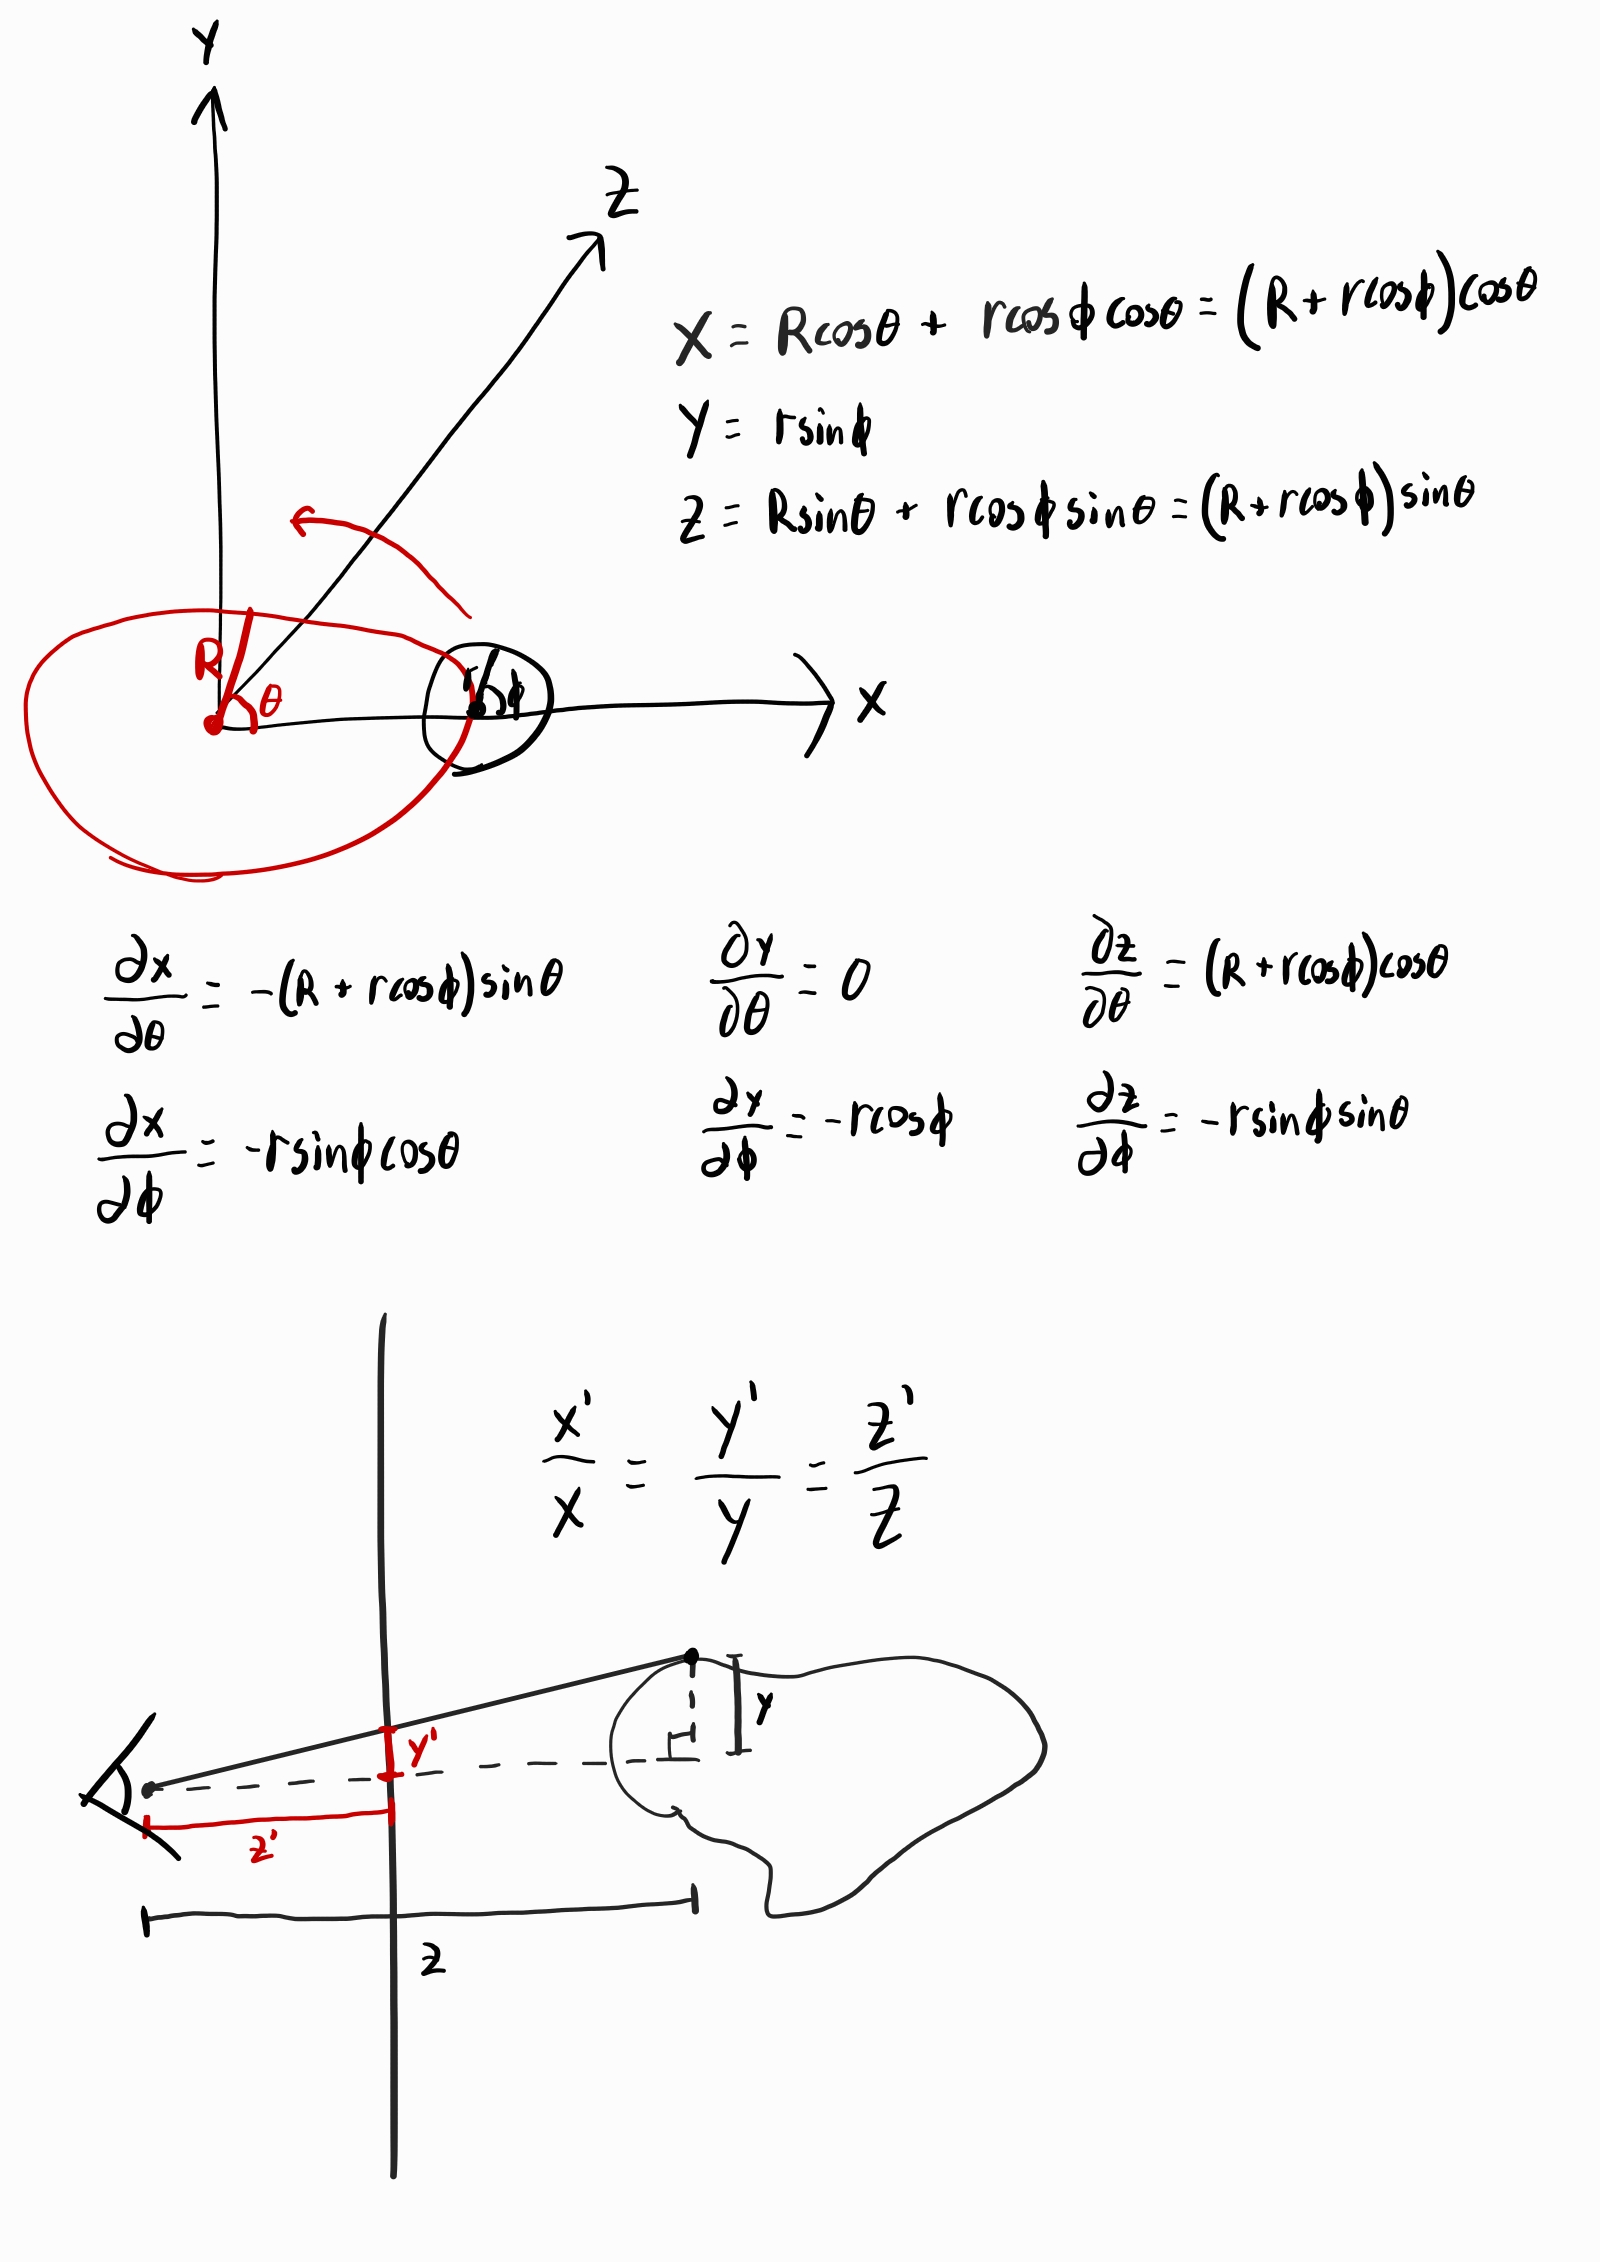 Y
Z
X = Rcosθ + rcosϕcosθ = (R + rcosϕ)cosθ
Y = rsinϕ
Z = Rsinθ + rcosϕsinθ = (R + rcosϕ)sinθ
R
θ
r
ϕ
X
∂x/∂θ = -(R + rcosϕ)sinθ
∂Y/∂θ = 0
∂z/∂θ = (R + rcosϕ)cosθ
∂x/∂ϕ = -rsinϕcosθ
∂y/∂ϕ = -rcosϕ
∂z/∂ϕ = -rsinϕsinθ
x'/x = y'/y = z'/z
Y
Y'
z'
z